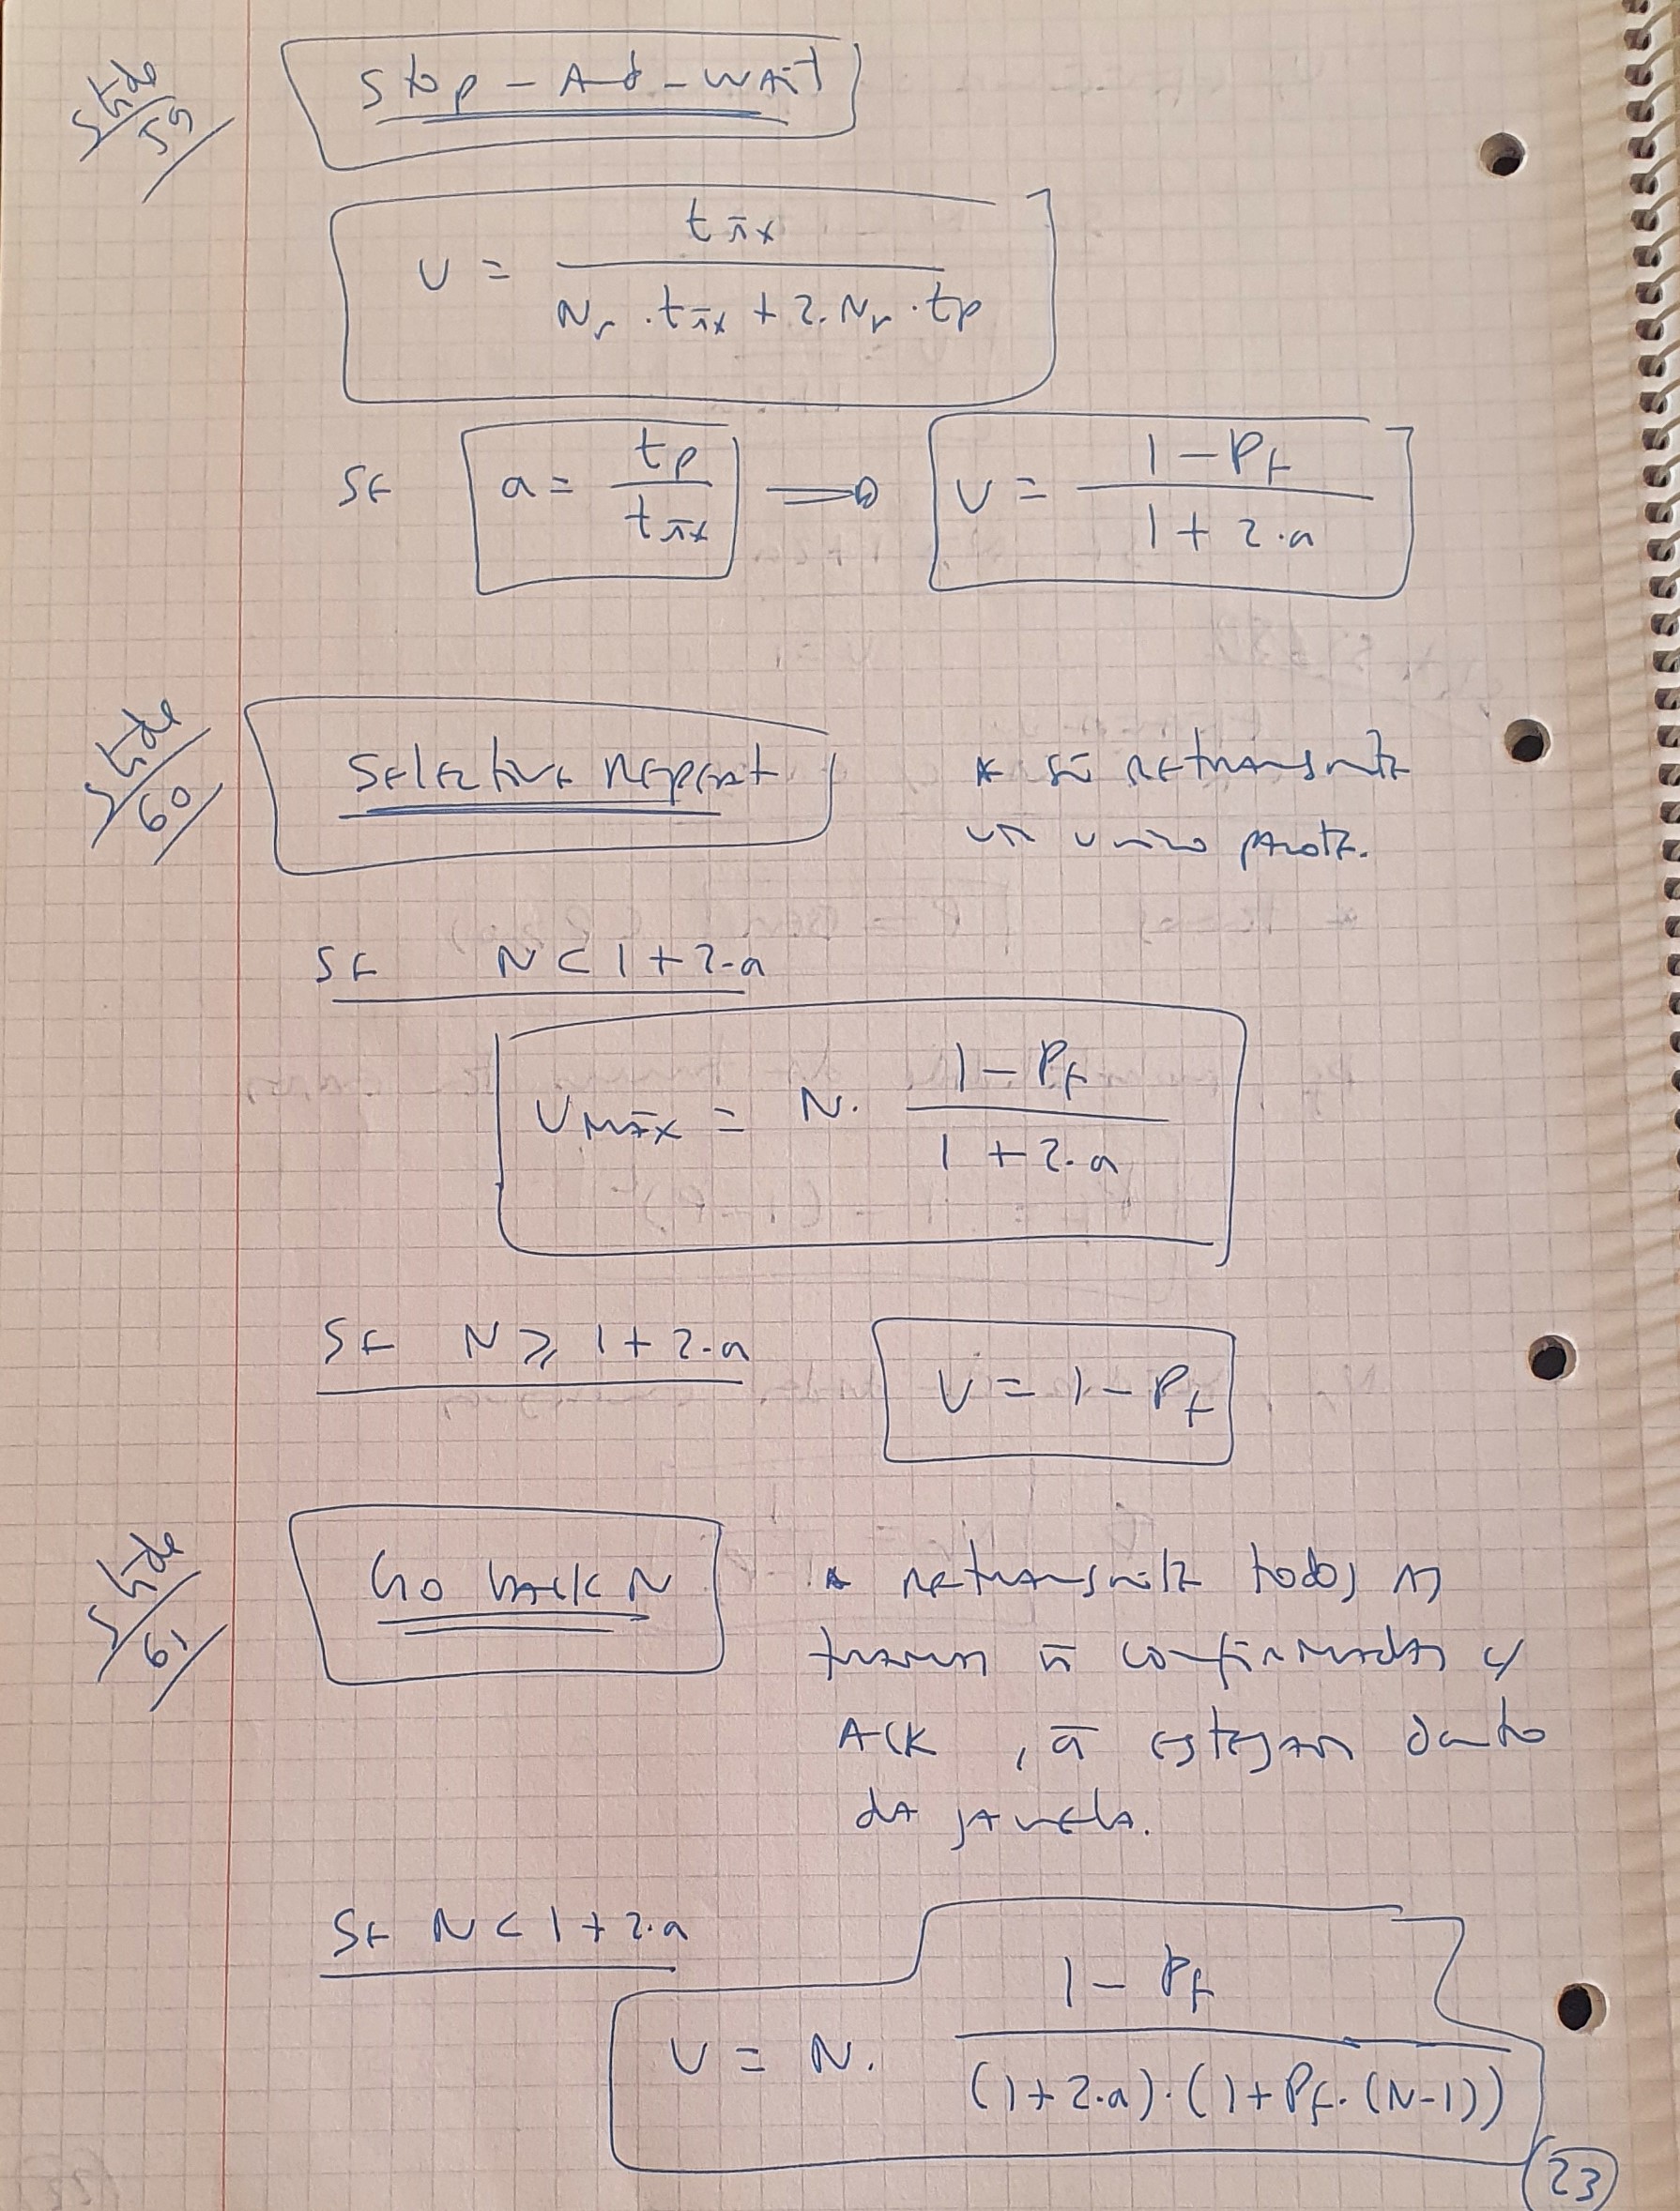 Slide 59
Stop-And-Wait
U = tTx / (Nr . tTx + 2. Nr . tp)
SE a = tp / tTx ⟹ U = (1 - Pf) / (1 + 2.a)
Slide 60
Selective Repeat
* só retransmite
um único pacote.
SE N < 1 + 2.a
Umáx = N. (1 - Pf) / (1 + 2.a)
SE N ⩾ 1 + 2.a U = 1 - Pf
Slide 61
Go back N
* retransmite todos as
tramas ñ confirmadas c/
ACK , q estejam dentro
da janela.
SE N < 1 + 2.a
U = N. (1 - Pf) / ((1 + 2.a) . (1 + Pf . (N-1)))
23